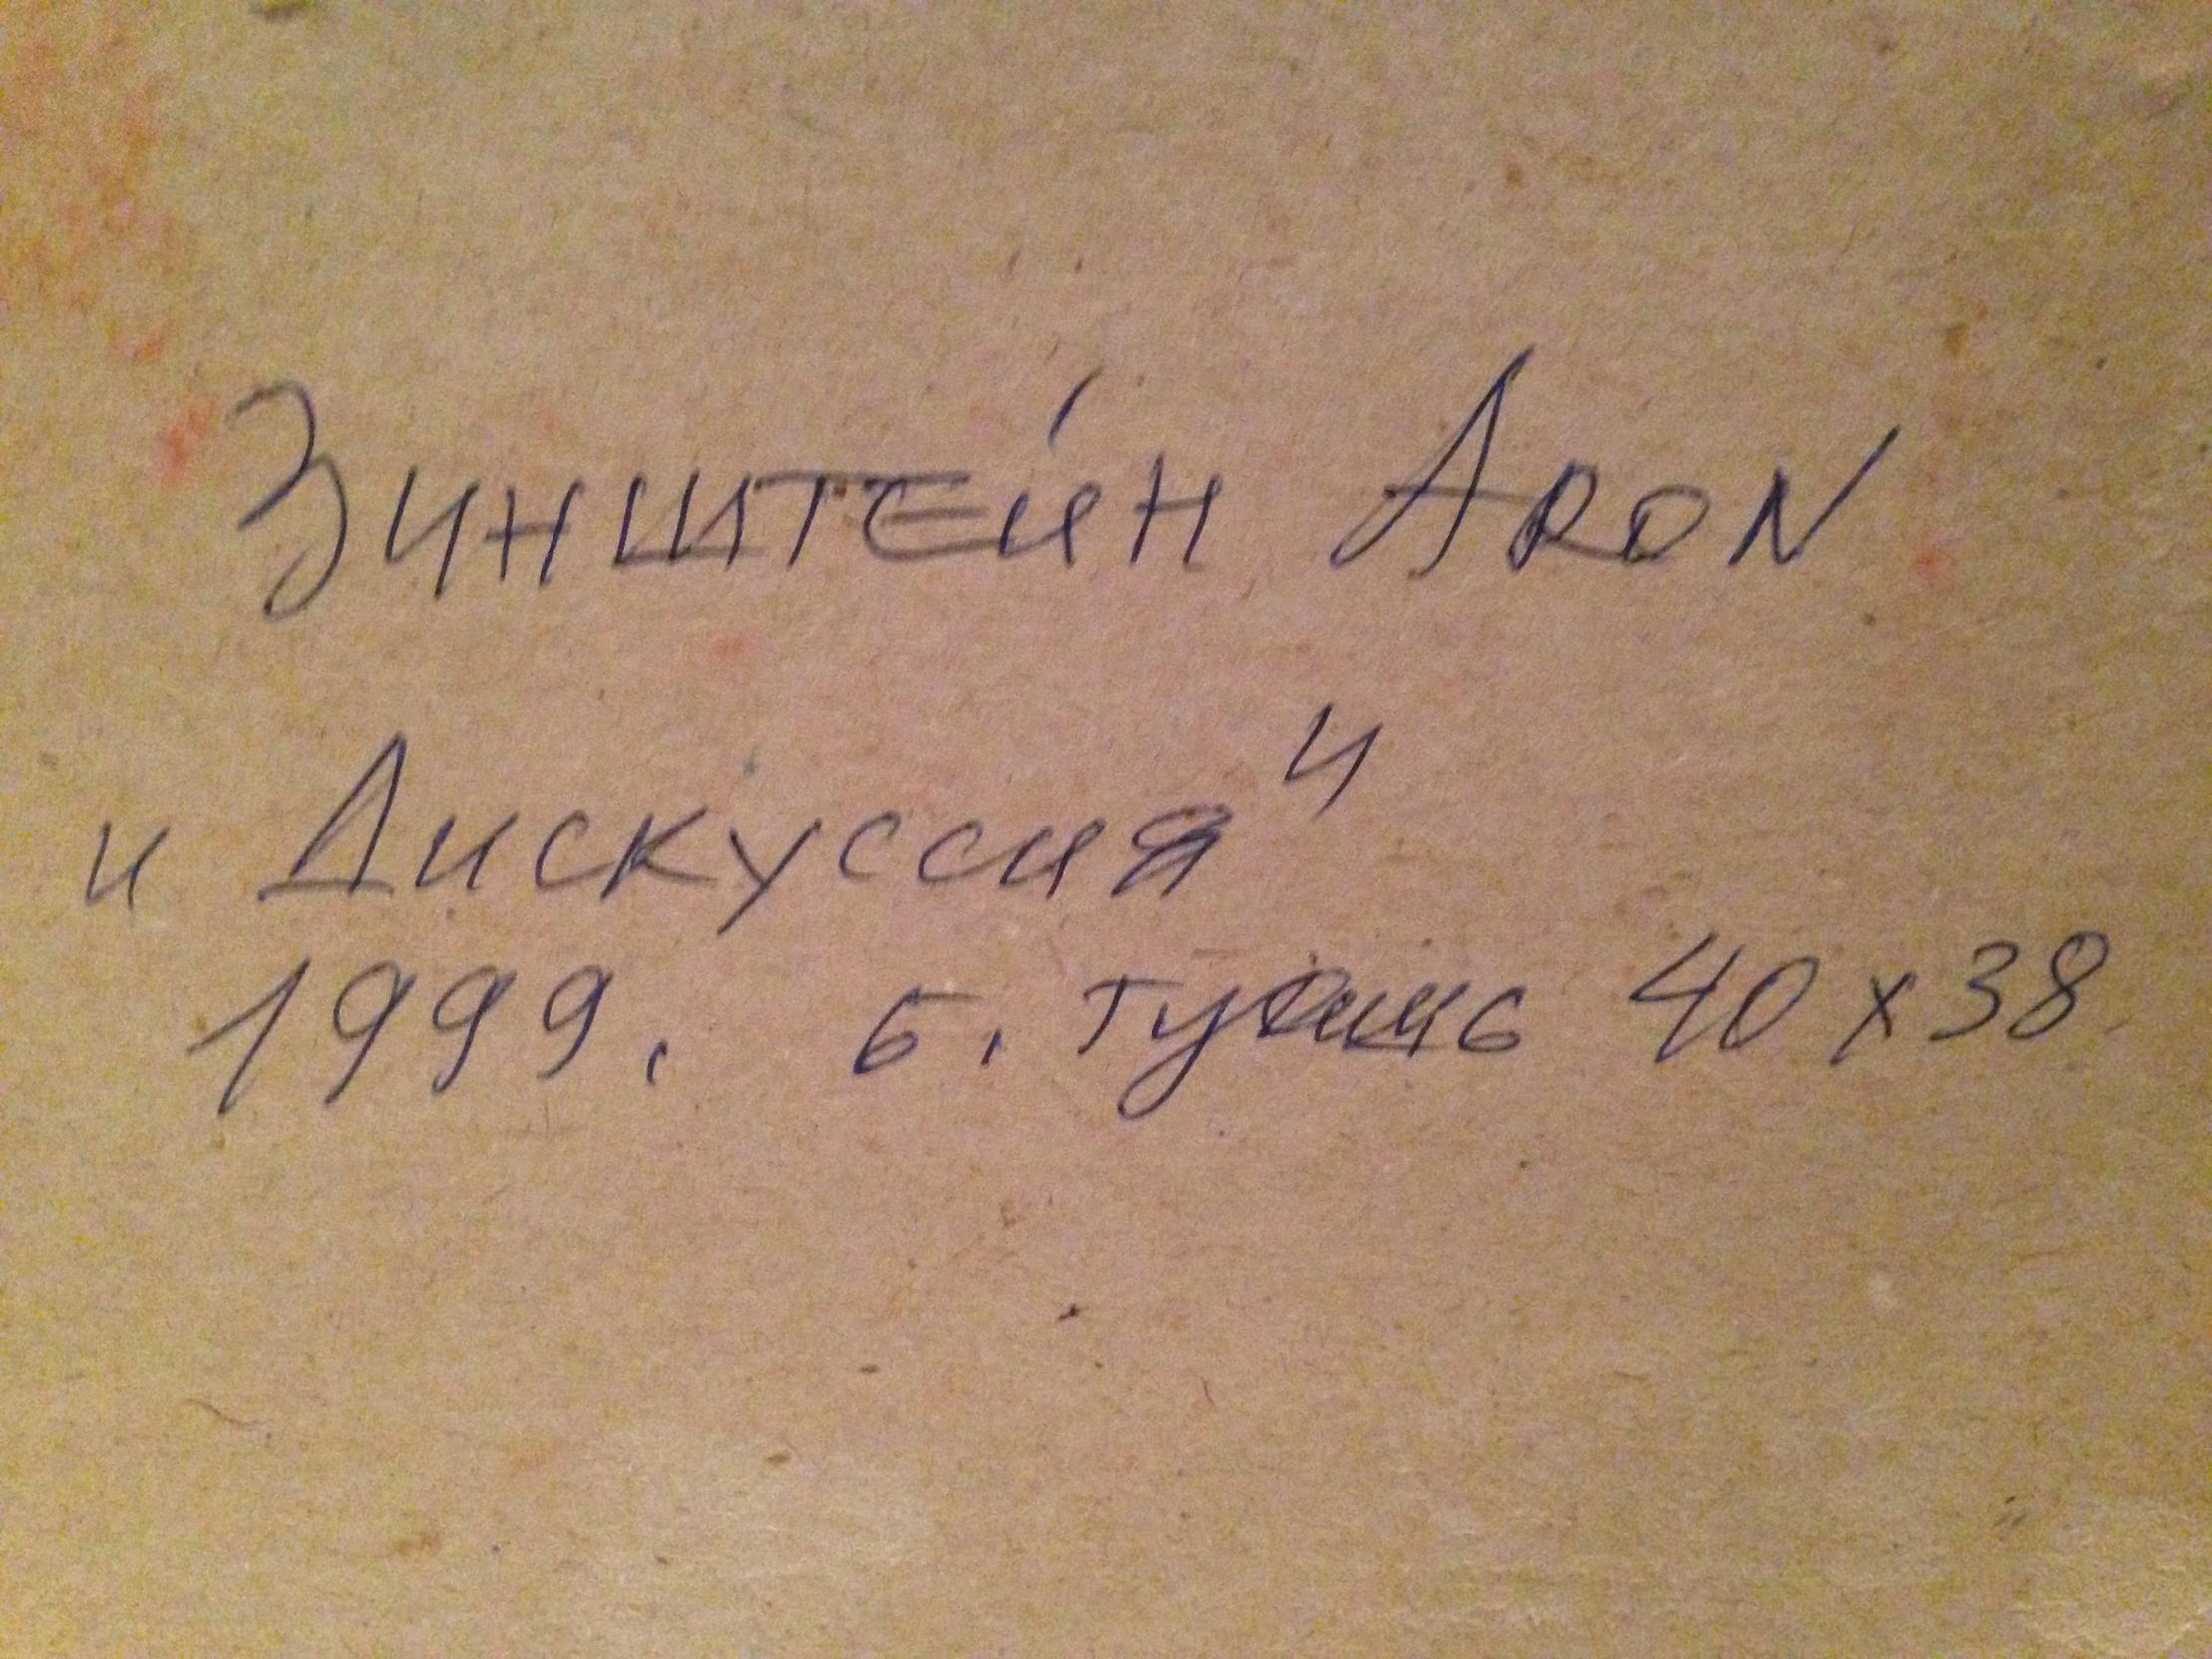 Зинштейн ARON
"Дискуссия"
1999. б. гуашь 40 x 38